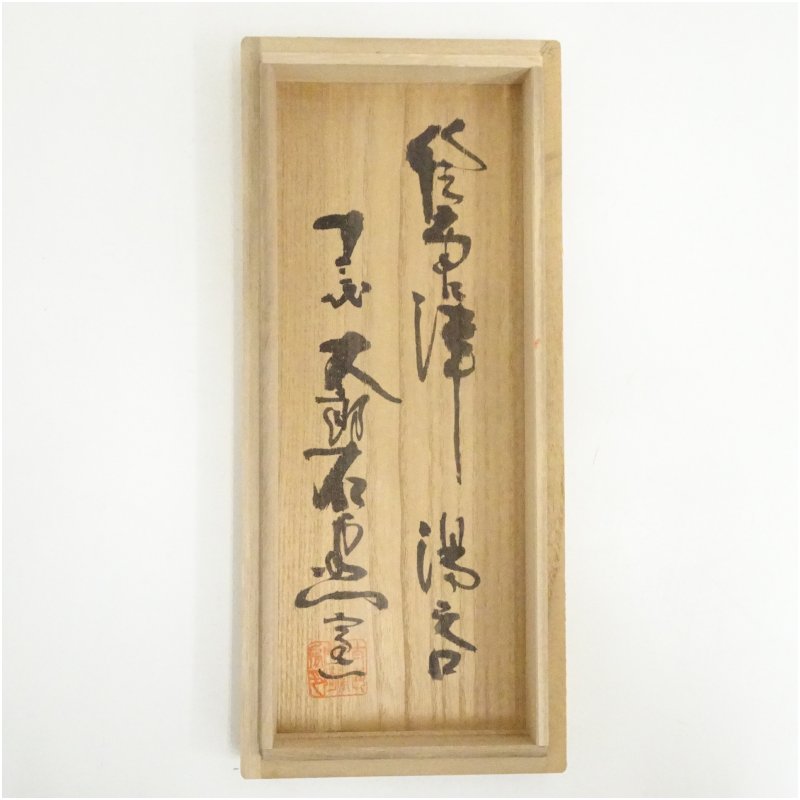 絵唐津 湯呑
太郎右衛門窯